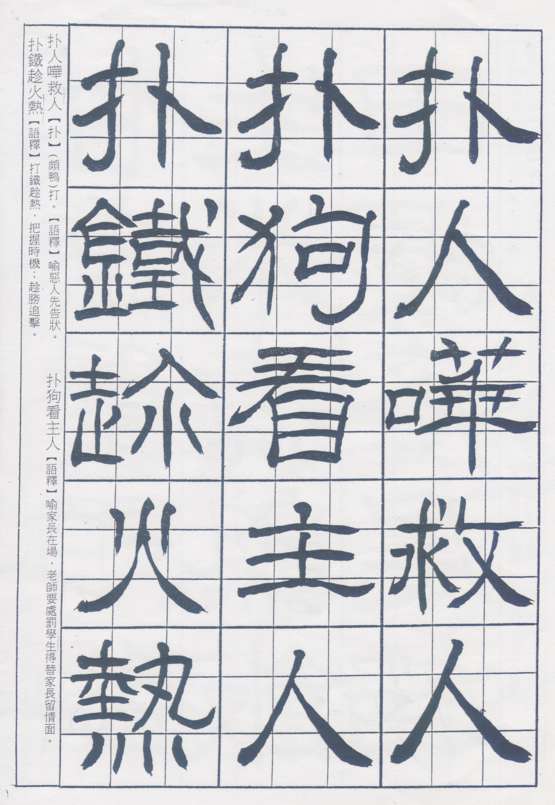 扑人嘩救人
扑狗看主人
扑鐵趁火熱
扑人嘩救人【扑】(頗鴨)打。【語釋】喻惡人先告狀。
扑狗看主人【語釋】喻家長在場，老師要處罰學生得替家長留情面。
扑鐵趁火熱【語釋】打鐵趁熱，把握時機；趁勝追擊。